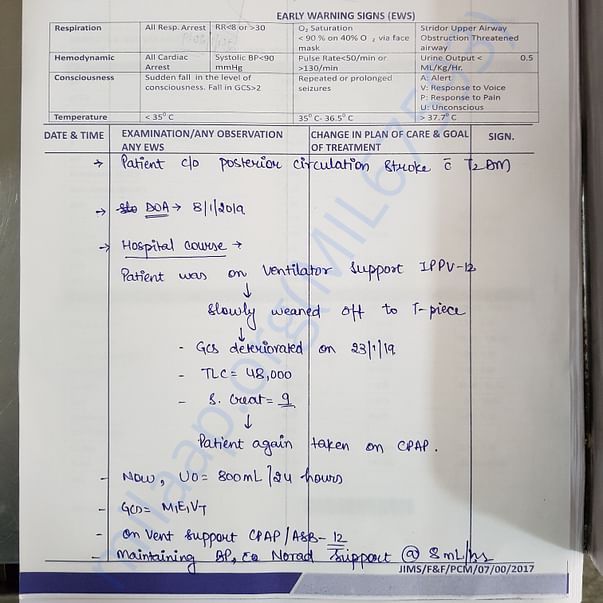 EARLY WARNING SIGNS (EWS)
Respiration All Resp. Arrest RR<8 or >30 O₂ Saturation < 90 % on 40% O ₂ via face mask Stridor Upper Airway Obstruction Threatened airway
Hemodynamic All Cardiac Arrest Systolic BP<90 mmHg Pulse Rate<50/min or >130/min Urine Output < 0.5 ML/Kg/Hr.
Consciousness Sudden fall in the level of consciousness. Fall in GCS>2 Repeated or prolonged seizures A: Alert
V: Response to Voice
P: Response to Pain
U: Unconscious
Temperature < 35° C 35° C- 36.5° C > 37.7° C
DATE & TIME EXAMINATION/ANY OBSERVATION ANY EWS CHANGE IN PLAN OF CARE & GOAL OF TREATMENT SIGN.
→ Patient c/o posterior circulation stroke c̄ T2DM
→ DOA → 8/1/2019
→ Hospital course →
Patient was on ventilator support IPPV-12
↓
slowly weaned off to T-piece
↓
- GCS deteriorated on 23/1/19
- TLC = 48,000
- S. Creat = 9
↓
Patient again taken on CPAP.
- Now, UO = 800mL/24 hours
- GCS = M1E1VT
- On Vent support CPAP/ASB-12
- Maintaining BP, Norad support @ 8mL/hr
JIMS/F&F/PCM/07/00/2017